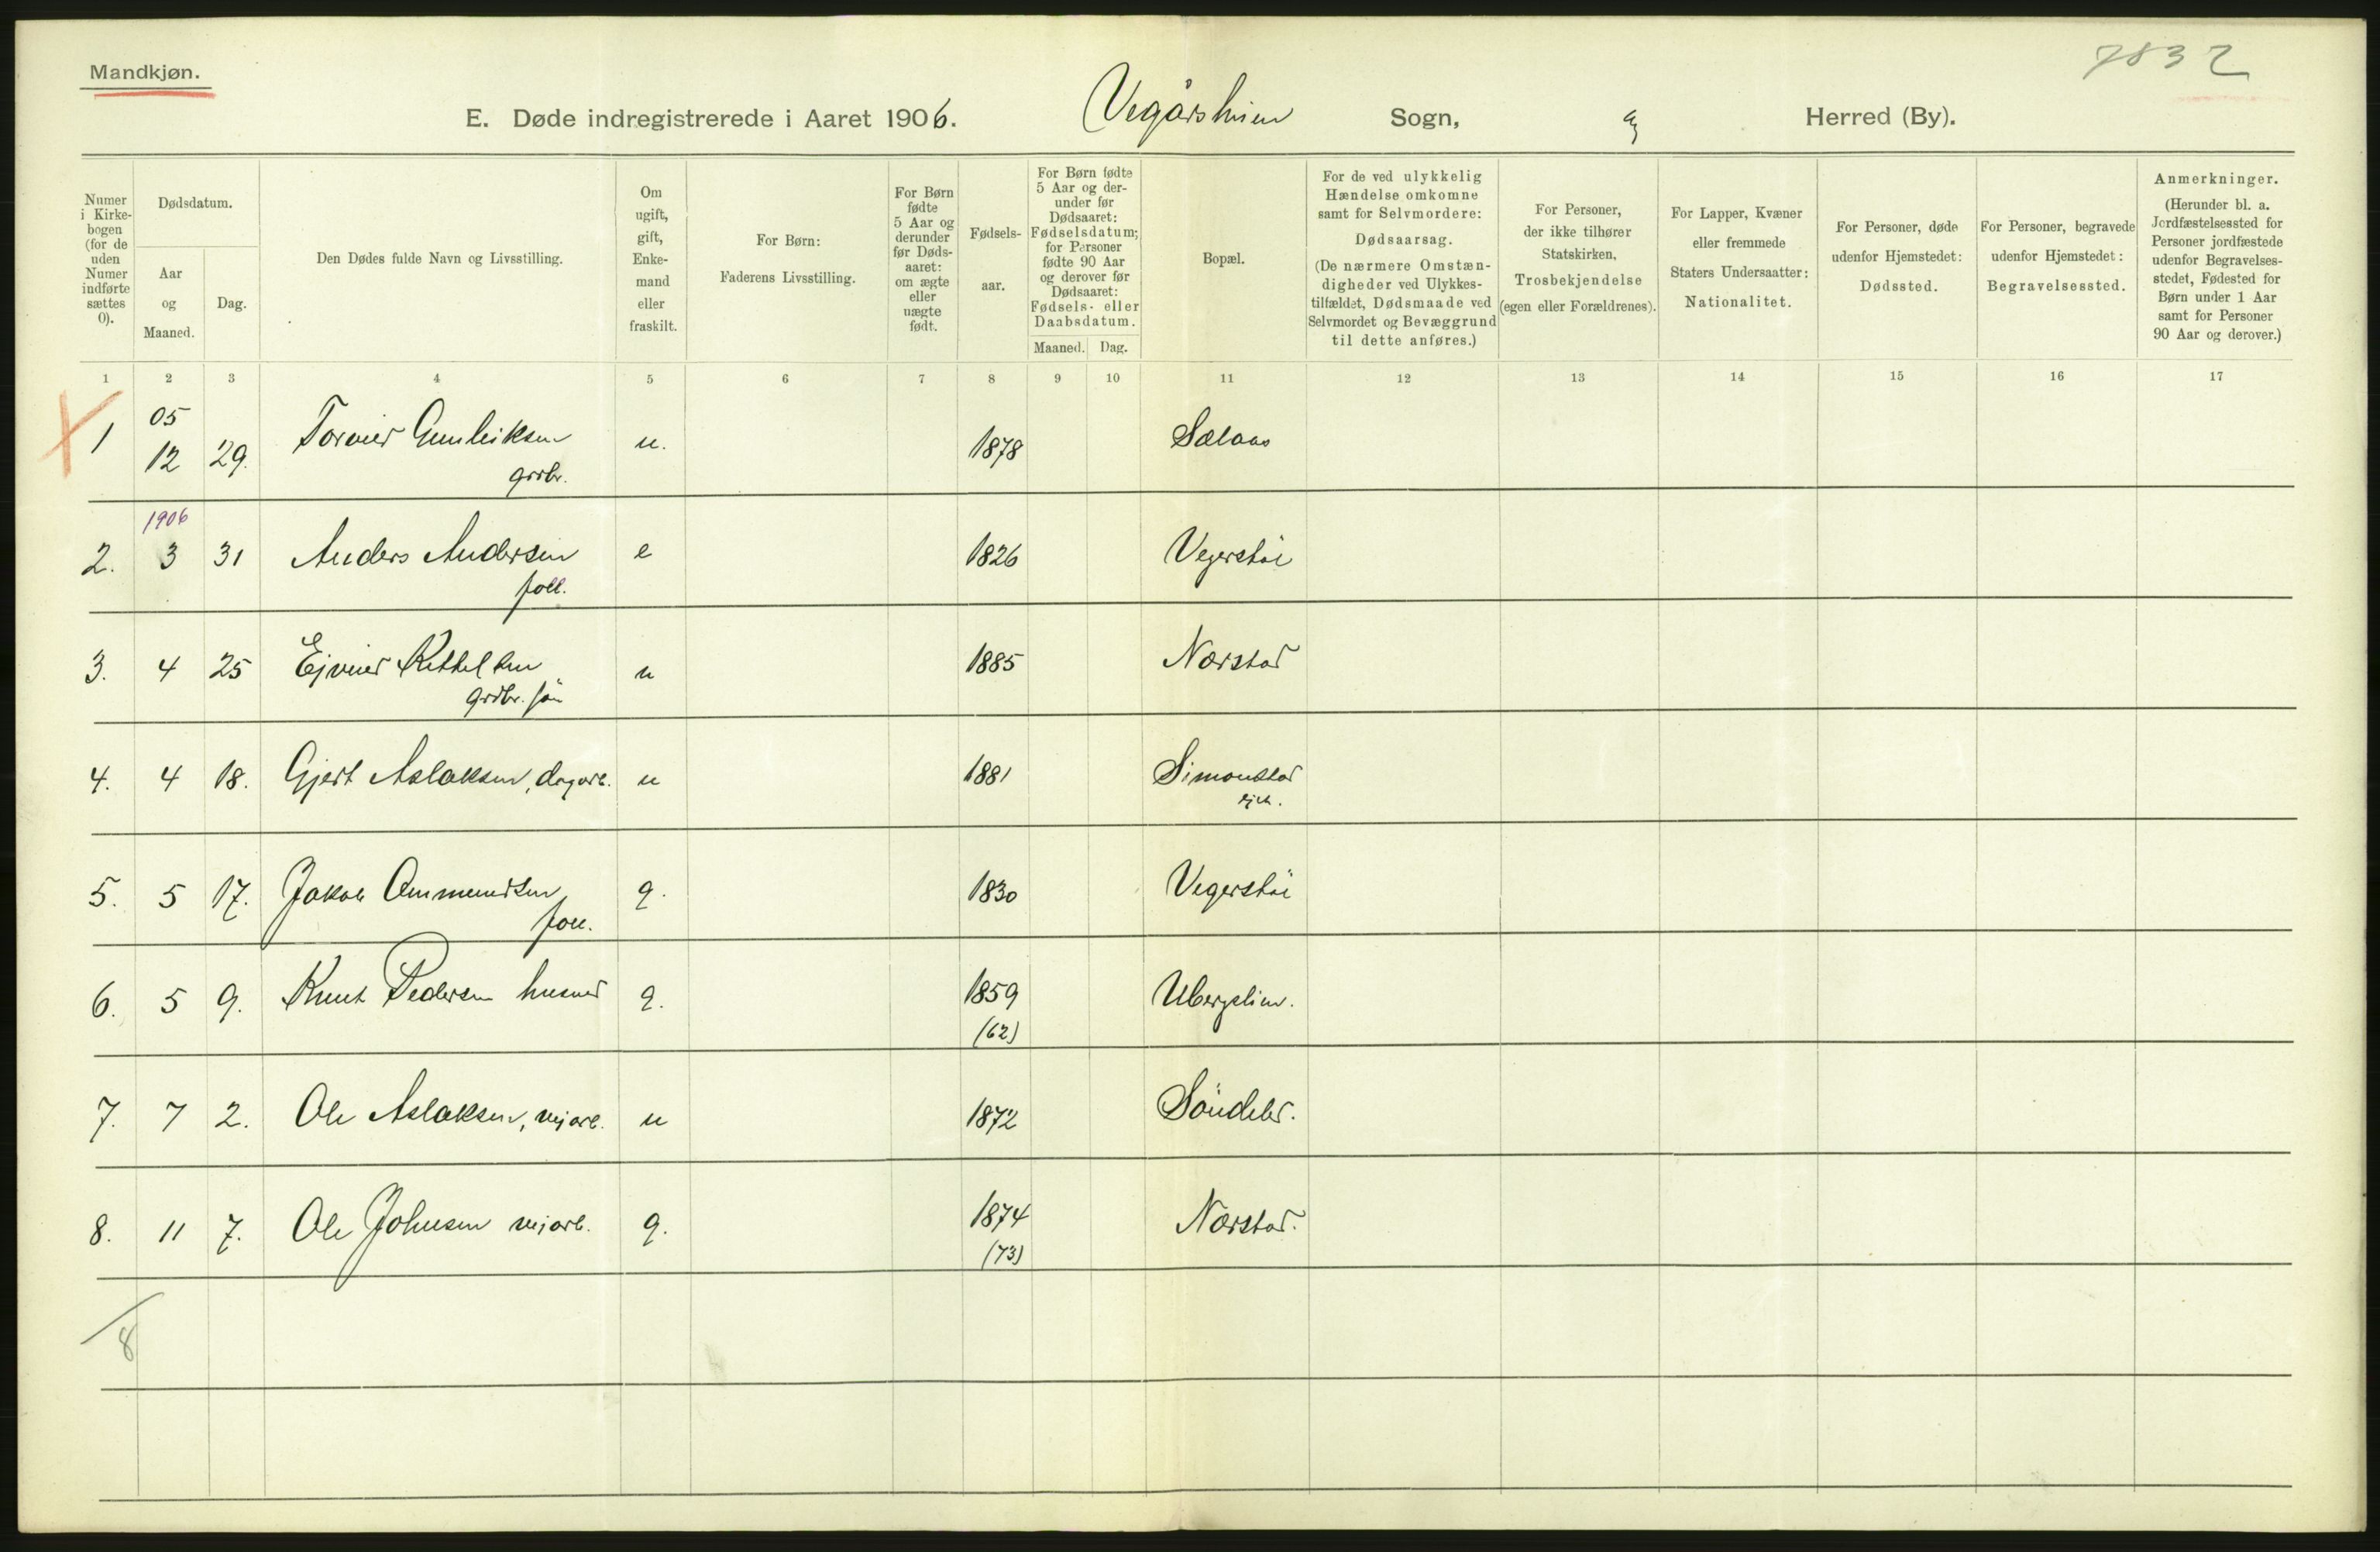 Mandkjøn.
7832
E. Døde indregistrerede i Aaret 1906. Vegårshien Sogn, Herred (By).
Numer i Kirkebogen (for de uden Numer indførte sættes 0).
Dødsdatum.
Aar og Maaned.
Dag.
Den Dødes fulde Navn og Livsstilling.
Om ugift, gift, Enkemand eller fraskilt.
For Børn: Faderens Livsstilling.
For Børn fødte 5 Aar og derunder før Dødsaaret: om ægte eller uægte født.
Fødselsaar.
For Børn fødte 5 Aar og derunder før Dødsaaret: Fødselsdatum; for Personer fødte 90 Aar og derover før Dødsaaret: Fødsels- eller Daabsdatum.
Maaned. Dag.
Bopæl.
For de ved ulykkelig Hændelse omkomne samt for Selvmordere: Dødsaarsag. (De nærmere Omstændigheder ved Ulykkestilfældet, Dødsmaade ved Selvmordet og Bevæggrund til dette anføres.)
For Personer, der ikke tilhører Statskirken, Trosbekjendelse (egen eller Forældrenes).
For Lapper, Kvæner eller fremmede Staters Undersaatter: Nationalitet.
For Personer, døde udenfor Hjemstedet: Dødssted.
For Personer, begravede udenfor Hjemstedet: Begravelsessted.
Anmerkninger. (Herunder bl. a. Jordfæstelsessted for Personer jordfæstede udenfor Begravelsesstedet, Fødested for Børn under 1 Aar samt for Personer 90 Aar og derover.)
1 2 3 4 5 6 7 8 9 10 11 12 13 14 15 16 17
05
1 12 29. Torvier Gunleiksen u. 1878 Sælaas
grdbr.
1906
2. 3 31 Anders Andersen e 1826 Vegerstøl
foll.
3. 4 25 Ejvind Kittelsen u 1885 Nærstad
grdbr. søn
4. 4 18. Gjert Aslaksen, dagarb. u 1881 Simonstad
ejd.
5. 5 17. Jakob Ommundsen g. 1830 Vegerstøl
foll.
6. 5 9. Knut Pedersen husmd g. 1859 Ubergslien.
(62)
7. 7 2. Ole Aslaksen, vejarb. u 1872 Søndeled.
8. 11 7. Ole Johnsen vejarb. g. 1874 Nærstad.
(73)
8